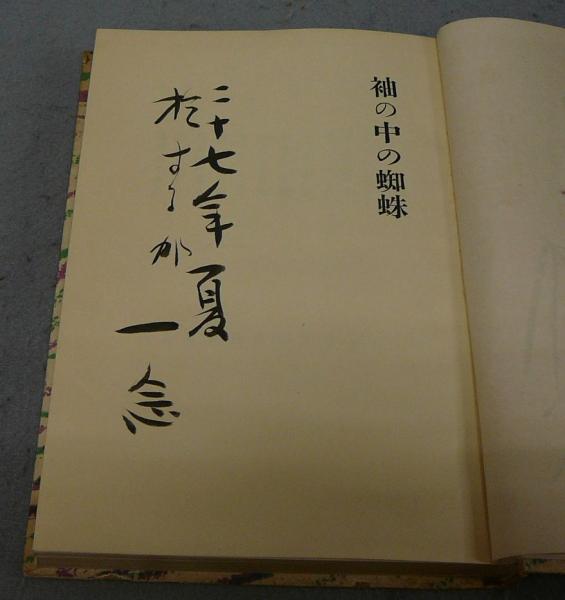 袖の中の蜘蛛
二十七年夏
於するが
一念